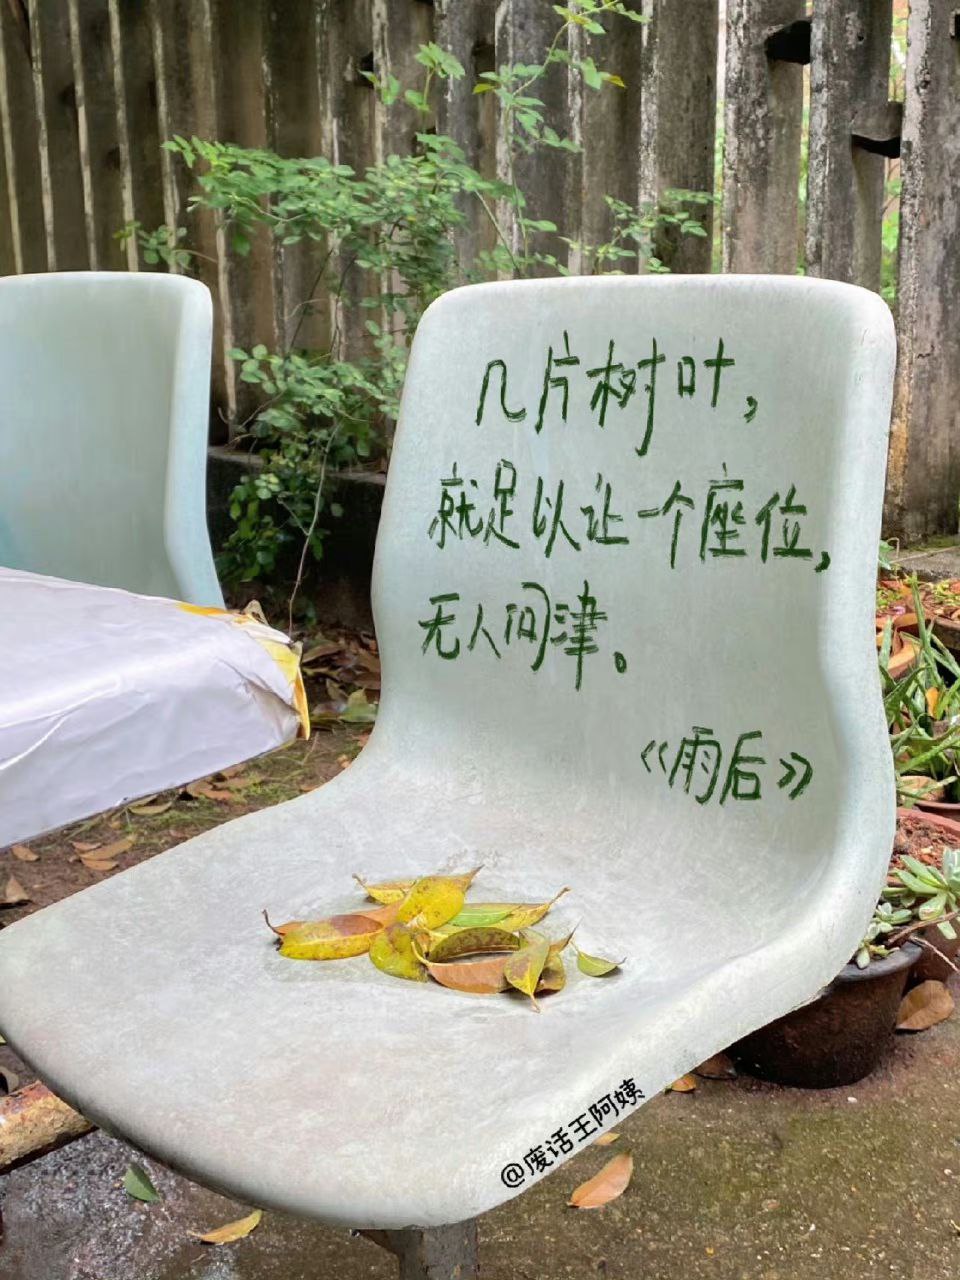 几片树叶，
就足以让一个座位，
无人问津。
《雨后》
@废话王阿姨